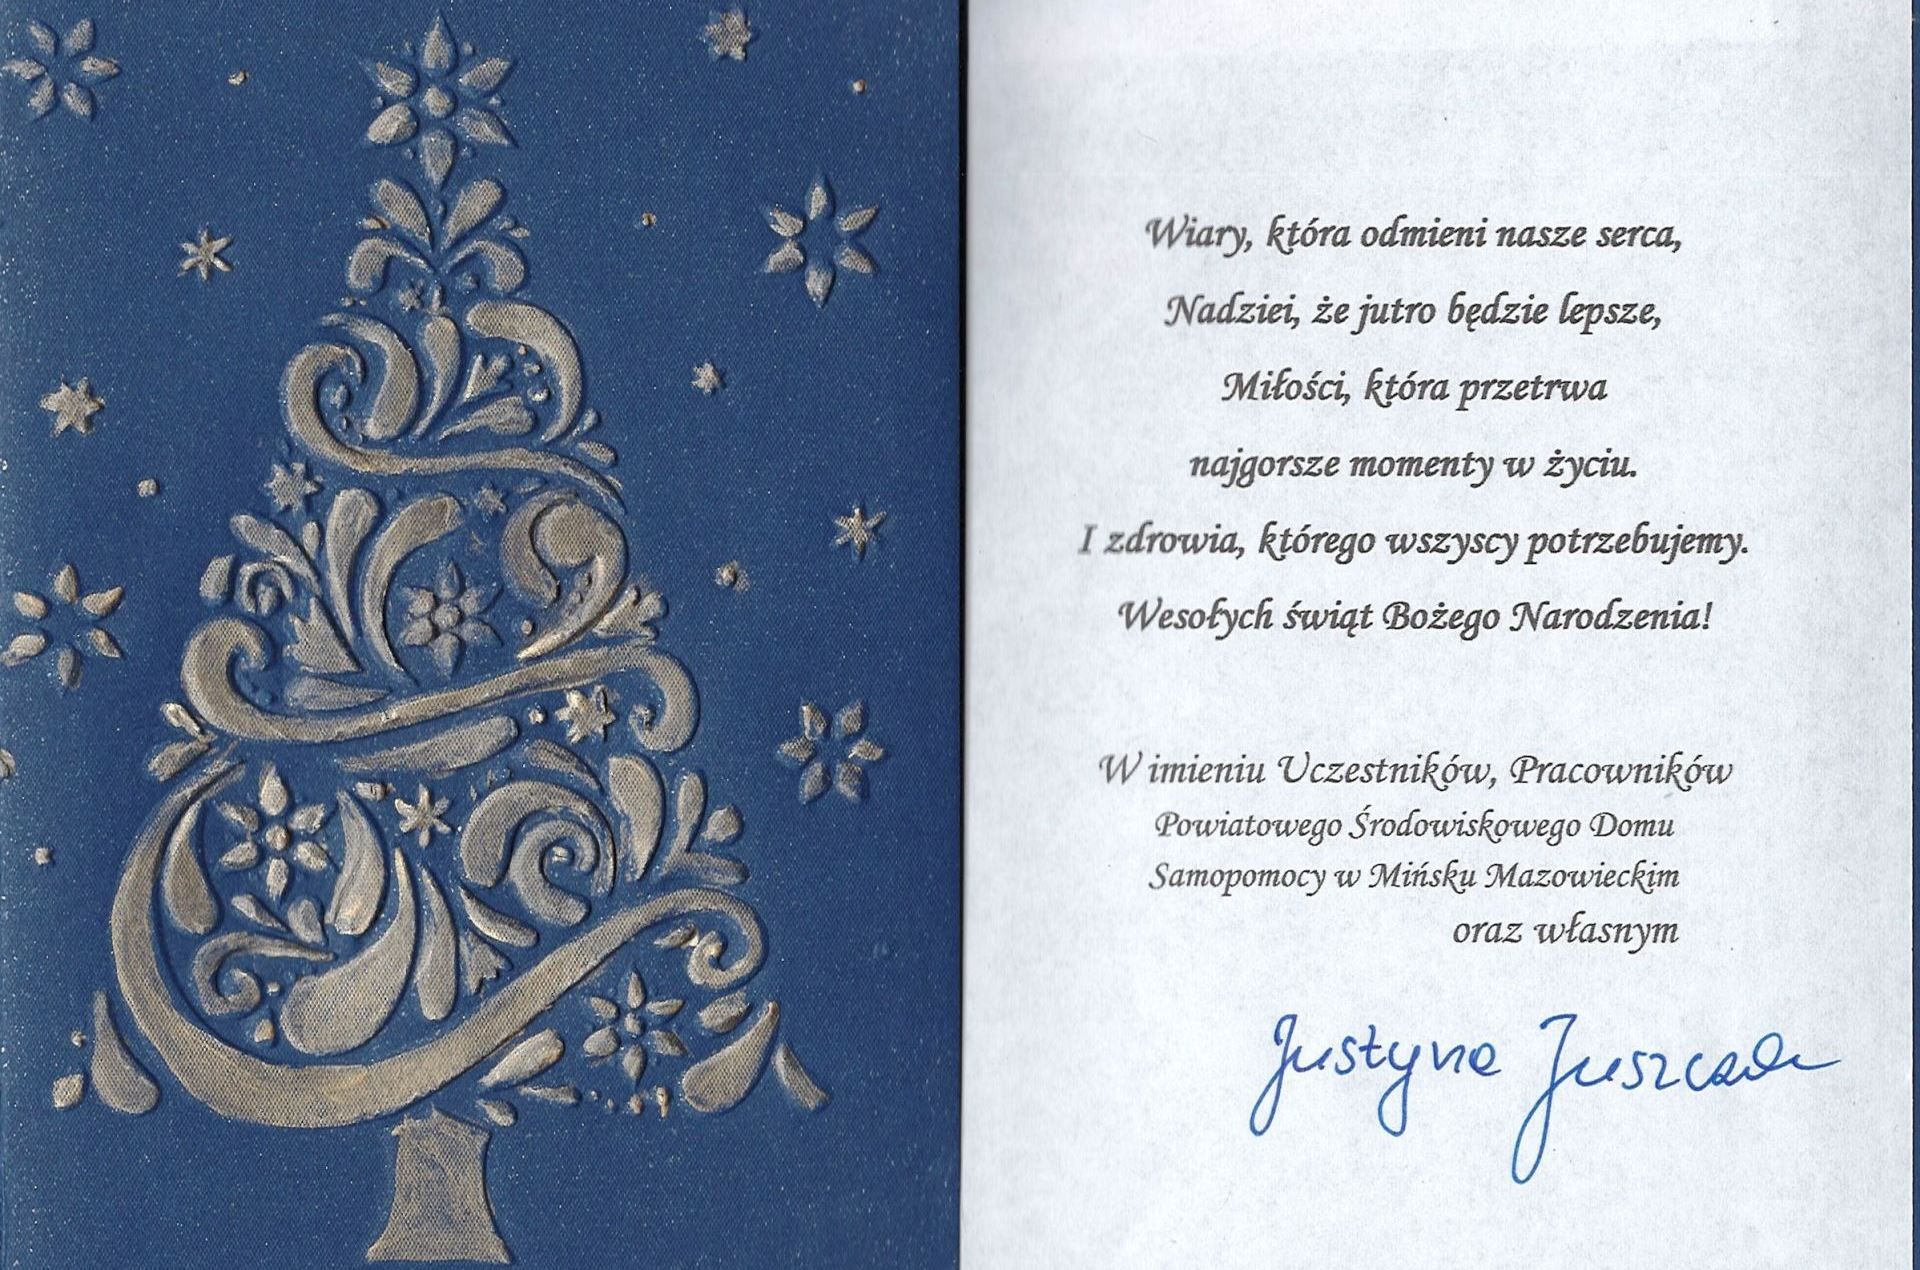 Wiary, która odmieni nasze serca,
Nadziei, że jutro będzie lepsze,
Miłości, która przetrwa
najgorsze momenty w życiu.
I zdrowia, którego wszyscy potrzebujemy.
Wesołych świąt Bożego Narodzenia!
W imieniu Uczestników, Pracowników
Powiatowego Środowiskowego Domu
Samopomocy w Mińsku Mazowieckim
oraz własnym
Justyna